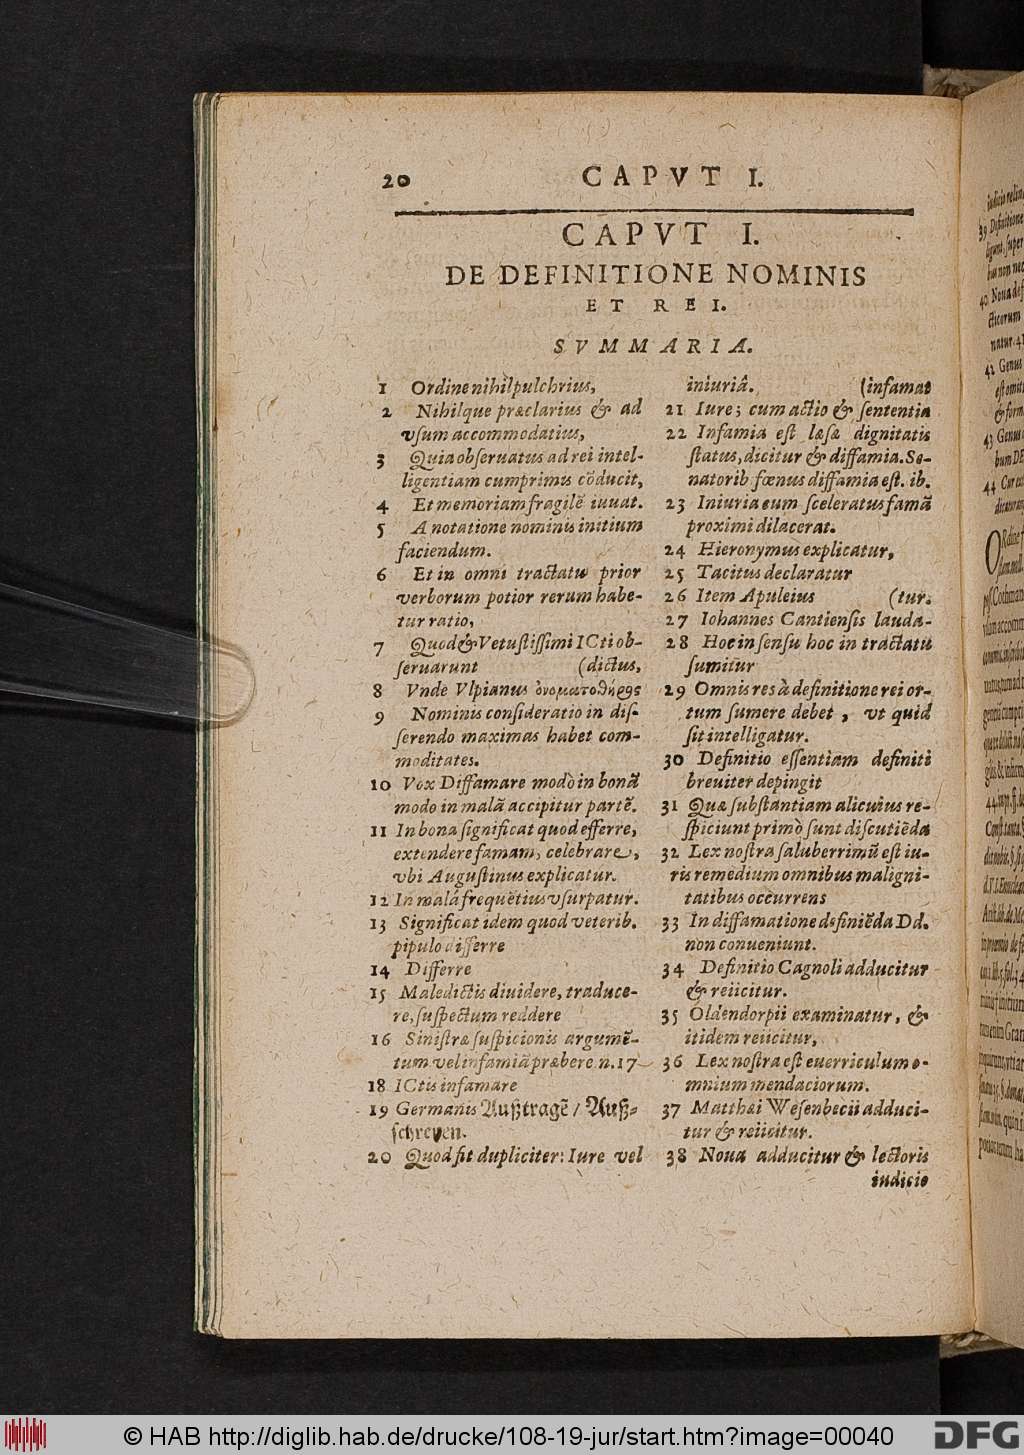 20 CAPVT I.
CAPVT I.
DE DEFINITIONE NOMINIS
ET REI.
SVMMARIA.
1 Ordine nihil pulchrius,
2 Nihilque præclarius & ad
vſum accommodatius,
3 Quia obſeruatus ad rei intel-
ligentiam cumprimis cōducit,
4 Et memoriam fragilē iuuat.
5 A notatione nominis initium
faciendum.
6 Et in omni tractatu prior
verborum potior rerum habe-
tur ratio,
7 Quod & Vetuſtiſſimi ICti ob-
ſeruarunt (dictus,
8 Vnde Vlpianus ὀνοματοθήρης
9 Nominis conſideratio in diſ-
ſerendo maximas habet com-
moditates.
10 Vox Diffamare modò in bonā
modo in malā accipitur partē.
11 In bona ſignificat quod efferre,
extendere famam, celebrare,
vbi Auguſtinus explicatur.
12 In malâ frequētius vſurpatur.
13 Significat idem quod veterib.
pipulo differre
14 Differre
15 Maledictis diuidere, traduce-
re, ſuſpectum reddere
16 Siniſtræ ſuſpicionis argumē-
tum vel infamiā præbere n. 17
18 ICtis infamare
19 Germanis Außtragē / Auß-
ſchreyen.
20 Quod fit dupliciter: Iure vel
iniuriâ. (infamat
21 Iure; cum actio & ſententia
22 Infamia eſt læſæ dignitatis
ſtatus, dicitur & diffamia. Se-
natorib fœnus diffamia eſt. ib.
23 Iniuria eum ſceleratus famā
proximi dilacerat.
24 Hieronymus explicatur,
25 Tacitus declaratur
26 Item Apuleius (tur.
27 Iohannes Cantienſis lauda-
28 Hoc in ſenſu hoc in tractatu
ſumitur
29 Omnis res à definitione rei or-
tum ſumere debet, vt quid
ſit intelligatur.
30 Definitio eſſentiam definiti
breuiter depingit
31 Quæ ſubſtantiam alicuius re-
ſpiciunt primò ſunt diſcutiēda
32 Lex noſtra ſaluberrimū eſt iu-
ris remedium omnibus maligni-
tatibus occurrens
33 In diffamatione definiēda Dd.
non conueniunt.
34 Definitio Cagnoli adducitur
& reiicitur.
35 Oldendorpii examinatur, &
itidem reiicitur,
36 Lex noſtra eſt euerriculum o-
mnium mendaciorum.
37 Matthæi Weſenbecii adduci-
tur & reiicitur.
38 Noua adducitur & lectoris
iudicio
© HAB http://diglib.hab.de/drucke/108-19-jur/start.htm?image=00040
DFG